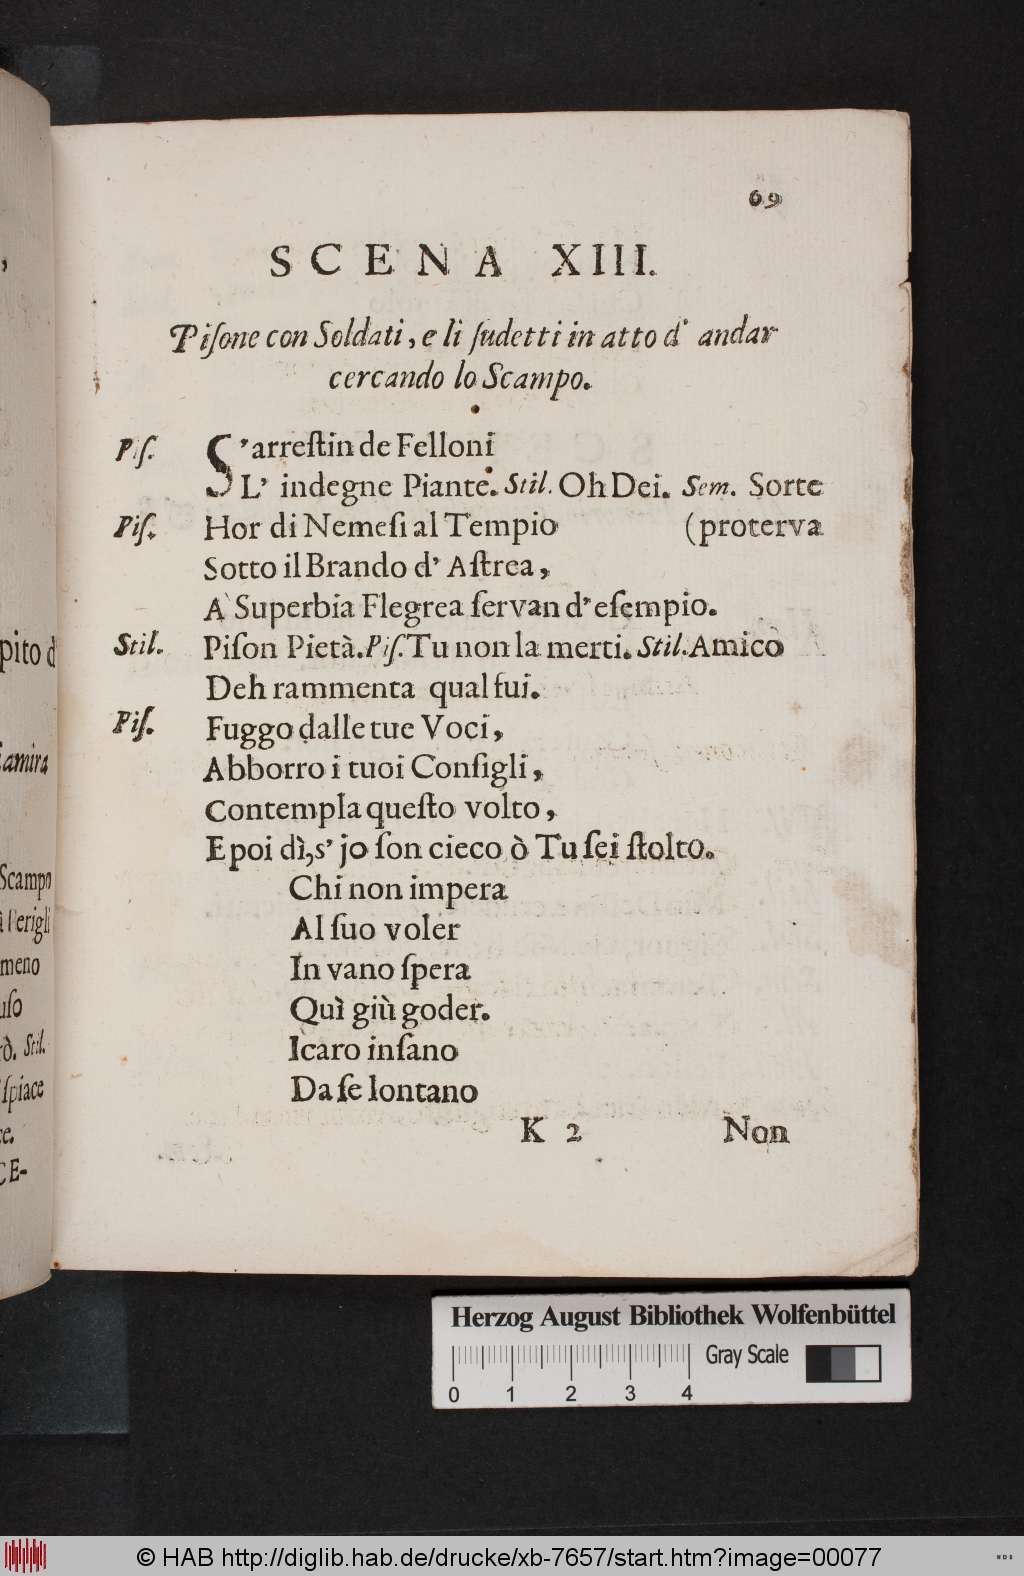 69
SCENA XIII.
Piſone con Soldati, e li ſudetti in atto d' andar
cercando lo Scampo.
Piſ. S'arreſtin de Felloni
L' indegne Piante. Stil. Oh Dei. Sem. Sorte
Piſ. Hor di Nemeſi al Tempio (proterva
Sotto il Brando d' Aſtrea,
A Superbia Flegrea ſervan d'eſempio.
Stil. Piſon Pietà. Piſ. Tu non la merti. Stil. Amico
Deh rammenta qual fui.
Piſ. Fuggo dalle tue Voci,
Abborro i tuoi Conſigli,
Contempla queſto volto,
E poi dì, s' jo ſon cieco ò Tu ſei ſtolto.
Chi non impera
Al ſuo voler
In vano ſpera
Quì giù goder.
Icaro inſano
Da ſe lontano
K 2 Non
pito d'
amira
Scampo
meno
uſo
Stil.
ſpiace
CE-
Herzog August Bibliothek Wolfenbüttel
Gray Scale
0 1 2 3 4
© HAB http://diglib.hab.de/drucke/xb-7657/start.htm?image=00077